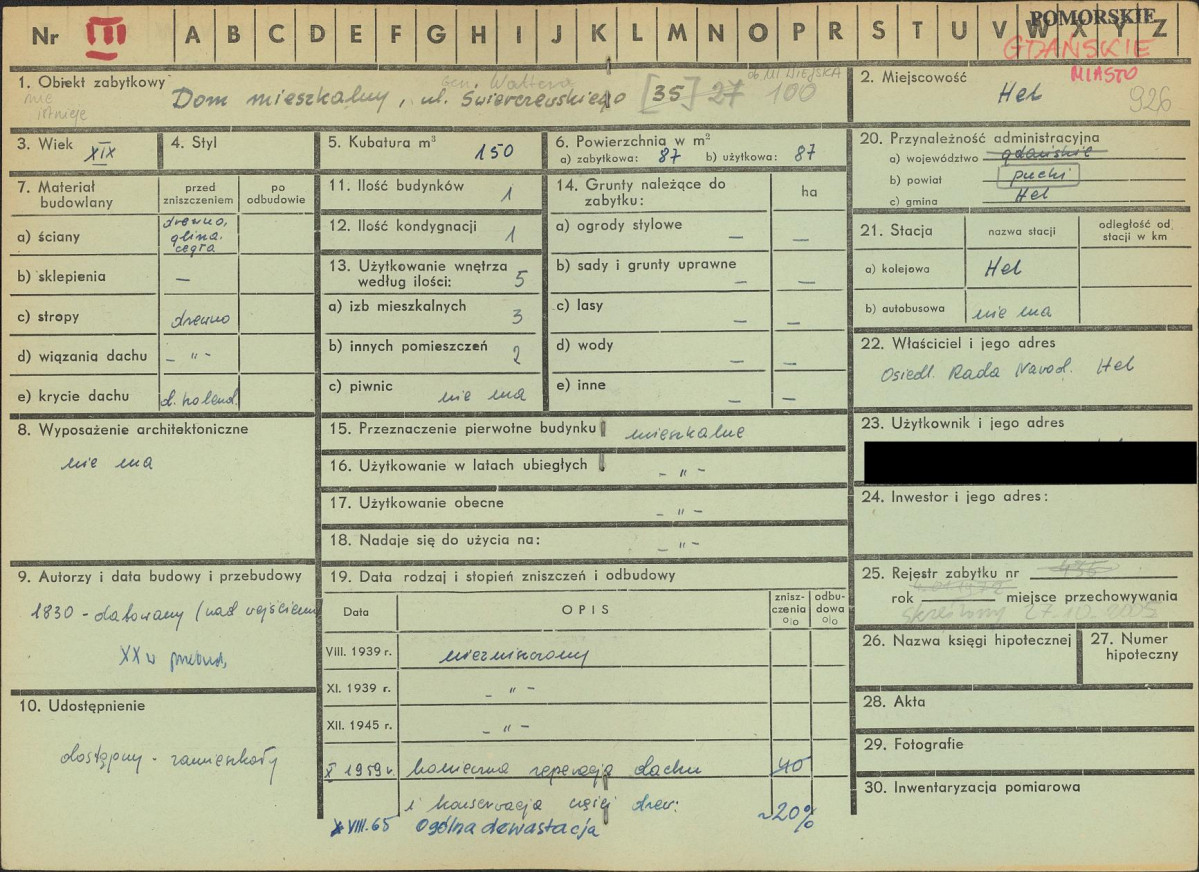 Nr III A B C D E F G H I J K L M N O P R S T U V W X Y Z
POMORSKIE
GDAŃSKIE
MIASTO
1. Obiekt zabytkowy
nie istnieje
Gen. Waltera
ob. MIEJSKA
Dom mieszkalny, ul. Świerczewskiego [35] 27 100
2. Miejscowość
Hel
926
3. Wiek XIX
4. Styl
5. Kubatura m³ 150
6. Powierzchnia w m²
a) zabytkowa: 87 b) użytkowa: 87
7. Materiał budowlany
przed zniszczeniem
po odbudowie
a) ściany drewno, glina, cegła
b) sklepienia —
c) stropy drewno
d) wiązania dachu – " –
e) krycie dachu d. holend.
8. Wyposażenie architektoniczne
nie ma
9. Autorzy i data budowy i przebudowy
1830 - datowany (nad wejściem)
XX w przebud.
10. Udostępnienie
dostępny - zamieszkały
11. Ilość budynków 1
12. Ilość kondygnacji 1
13. Użytkowanie wnętrza według ilości: 5
a) izb mieszkalnych 3
b) innych pomieszczeń 2
c) piwnic nie ma
14. Grunty należące do zabytku:
ha
a) ogrody stylowe — —
b) sady i grunty uprawne — —
c) lasy — —
d) wody — —
e) inne — —
15. Przeznaczenie pierwotne budynku mieszkalne
16. Użytkowanie w latach ubiegłych - " -
17. Użytkowanie obecne - " -
18. Nadaje się do użycia na: - " -
19. Data rodzaj i stopień zniszczeń i odbudowy
Data
OPIS
znisz-czenia o|o
odbu-dowa o|o
VIII. 1939 r. niezniszczony
XI. 1939 r. - " -
XII. 1945 r. - " -
X 1959 r. konieczna reperacja dachu 40
i konserwacja części drew:
~20%
VIII.65 Ogólna dewastacja
20. Przynależność administracyjna
a) województwo gdańskie
b) powiat pucki
c) gmina Hel
21. Stacja
nazwa stacji
odległość od stacji w km
a) kolejowa Hel
b) autobusowa nie ma
22. Właściciel i jego adres
Osiedl. Rada Narod. Hel
23. Użytkownik i jego adres
24. Inwestor i jego adres:
25. Rejestr zabytku nr 435
rok miejsce przechowywania
skreślony 27.10.2005
26. Nazwa księgi hipotecznej
27. Numer hipoteczny
28. Akta
29. Fotografie
30. Inwentaryzacja pomiarowa